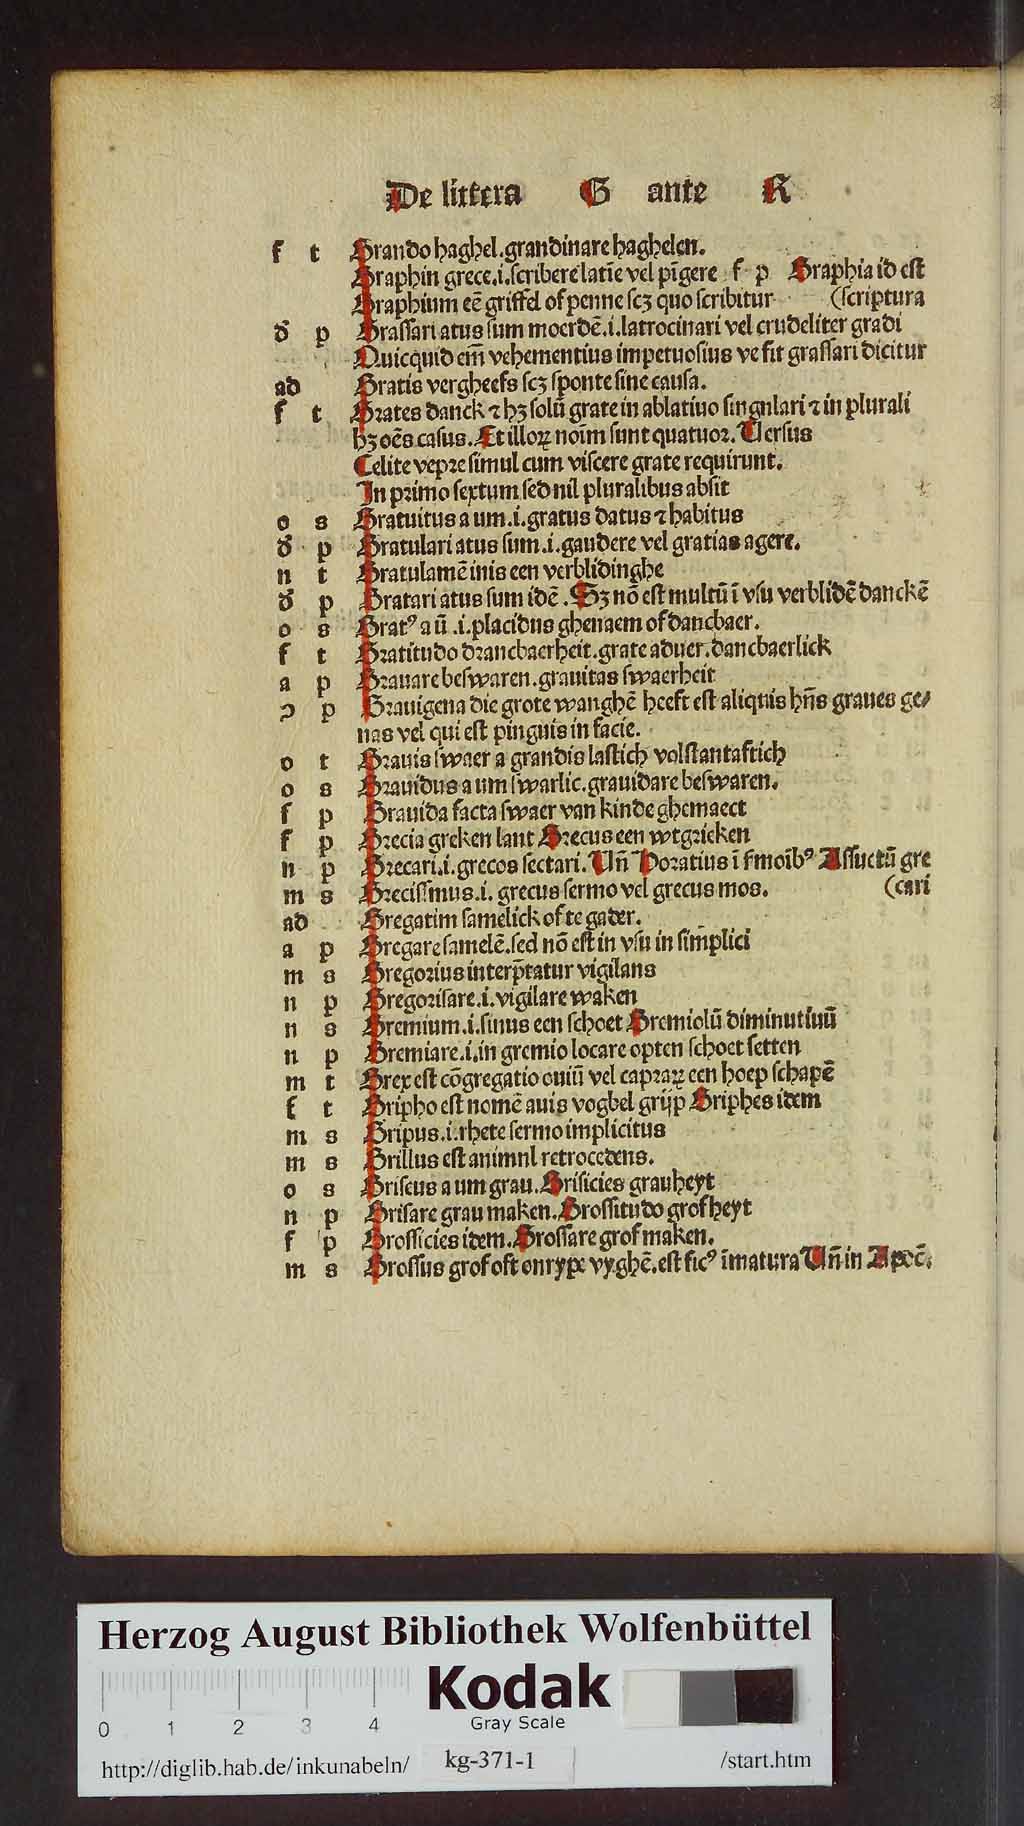 De littera G ante R
f t Grando haghel. grandinare haghelen.
Graphin grece .i. scribere latīe vel pīgere f p Graphia id est
Graphium eē griffel of penne scz quo scribitur (scriptura
d' p Grassari atus sum moerdē .i. latrocinari vel crudeliter gradi
Quicquid em̄ vehementius impetuosius ve fit grassari dicitur
ad Gratis vergheefs scz sponte sine causa.
f t Grates danck ⁊ hz solū grate in ablatiuo singulari ⁊ in plurali
hz oēs casus. Et illoꝝ noīm sunt quatuor. Versus
Celite vepre simul cum viscere grate requirunt.
In primo sextum sed nil pluralibus absit
o s Gratuitus a um .i. gratus datus ⁊ habitus
d' p Gratulari atus sum .i. gaudere vel gratias agere.
n t Gratulamē inis een verblidinghe
d' p Gratari atus sum idē. Sz nō est multū ī vsu verblidē danckē
o s Gratꝰ a ū .i. placidus ghenaem of dancbaer.
f t Gratitudo drancbaerheit. grate aduer. dancbaerlick
a p Grauare beswaren. grauitas swaerheit
ɔ p Grauigena die grote wanghē heeft est aliquis hn̄s graues ge⸗
nas vel qui est pinguis in facie.
o t Grauis swaer a grandis lastich volstantaftich
o s Grauidus a um swarlic. grauidare beswaren.
f p Grauida facta swaer van kinde ghemaect
f p Grecia greken lant Grecus een wtgrieken
n p Grecari .i. grecos sectari. Vn̄ Horatius ī ẜmoībꝰ Assuetū gre
m s Grecissmus .i. grecus sermo vel grecus mos. (cari
ad Gregatim samelick of te gader.
a p Gregare samelē. sed nō est in vsu in simplici
m s Gregorius interp̄tatur vigilans
n p Gregorisare .i. vigilare waken
n s Gremium .i. sinus een schoet Gremiolū diminutiuū
n p Gremiare .i. in gremio locare op ten schoet setten
m t Grex est cōgregatio ouiū vel capraꝝ een hoep schapē
f t Gripho est nomē auis voghel grijp Griphes idem
m s Gripus .i. rhete sermo implicitus
m s Grillus est animnl retrocedens.
o s Griseus a um grau. Grisicies grauheyt
n p Grisare grau maken. Grossitudo grofheyt
f p Grossicies idem. Grossare grof maken.
m s Grossus grof oft onrype vyghē. est ficꝰ īmatura Vn̄ in Apoc̄.
Herzog August Bibliothek Wolfenbüttel
Kodak
Gray Scale
0 1 2 3 4
http://diglib.hab.de/inkunabeln/ kg-371-1 /start.htm